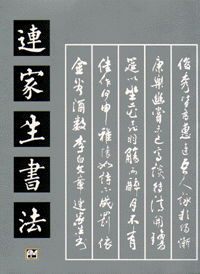 連家生書法
俊秀皆為惠連吾人詠歌獨慚
康樂幽賞未已高談轉清開瓊
筵以坐花飛羽觴而醉月不有
佳作何伸雅懷如詩不成罰依
金谷酒數李白文章連家生書